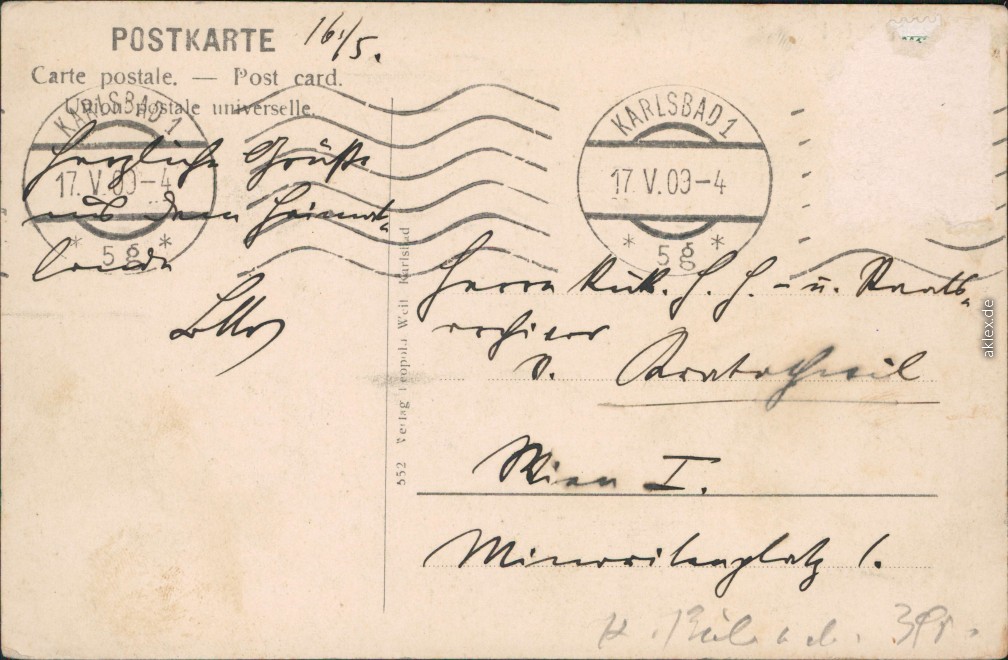 POSTKARTE 16./5.
Carte postale. — Post card.
Union postale universelle.
KARLSBAD 1
17.V.09-4
* 5g *
KARLSBAD 1
17.V.09-4
* 5g *
Herzliche Grüße
aus dem Heimat-
lande
Otto
552 Verlag Leopold Weil, Karlsbad
Herrn H. H. - u. Staats-
archivar
D.
Wien I.
Minoritenplatz 1.
aklex.de